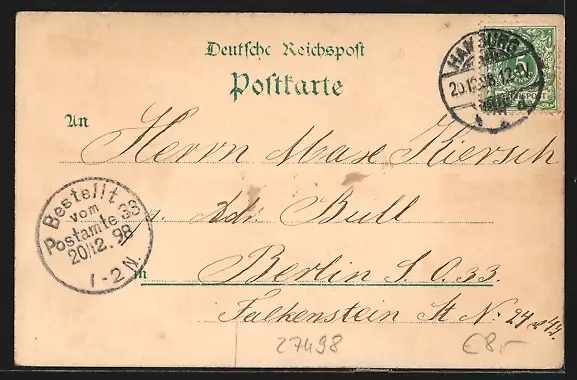 Deutsche Reichspost
Postkarte
HAMBURG
5
An
Herrn Max Kiersch
Adr. Bull
Bestellt
vom
Postamte 33
20/12.98
1-2 N.
in
Berlin S. O. 33.
Falkenstein St N: 24
27498
€8,-